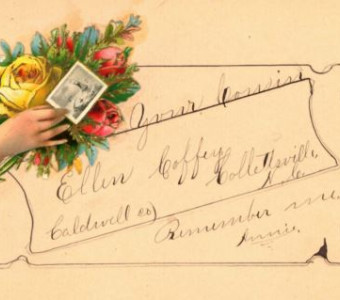 Your Cousin
Ellen Coffey
Collettsville,
N.C.
Caldwell co)
Remember me.
Annie.